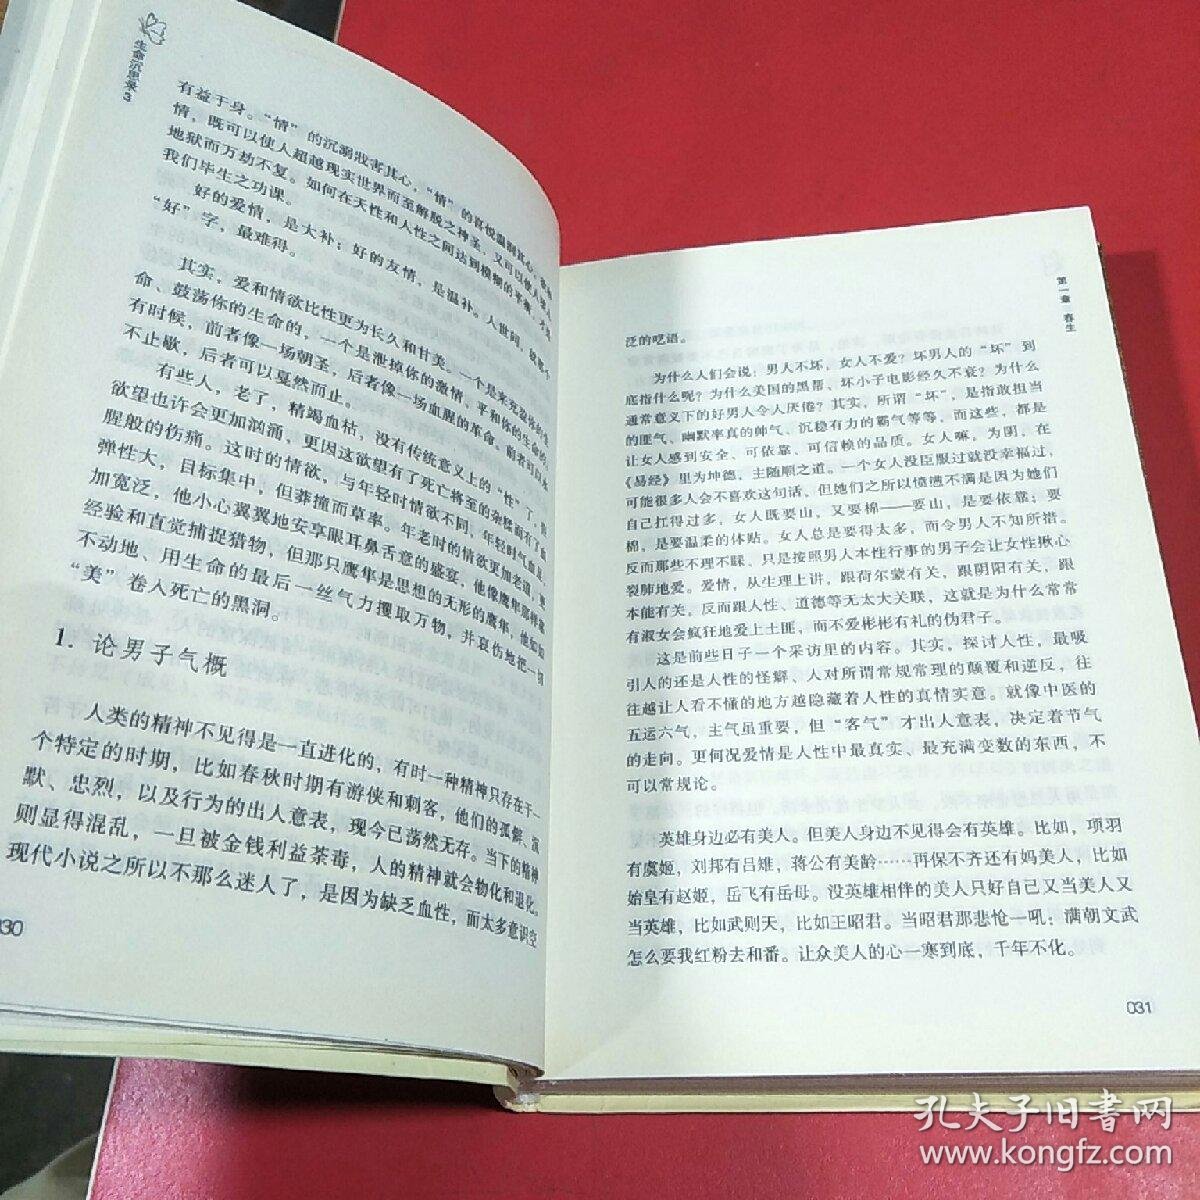 生命沉思录3
有益于身。“情”的沉溺戕害其心，“情”的喜悦温润其心。
情，既可以使人超越现实世界而至解脱之神圣，又可以使人堕入
地狱而万劫不复。如何在天性和人性之间达到模糊的平衡，才是
我们毕生之功课。
好的爱情，是大补；好的友情，是温补。人世间，就那个
“好”字，最难得。
其实，爱和情欲比性更为长久和甘美。一个是来充盈你的生
命、鼓荡你的生命的，一个是泄掉你的激情、平和你的生命的。
有时候，前者像一场朝圣，后者像一场血腥的革命。前者可以永
不止歇，后者可以戛然而止。
有些人，老了，精竭血枯，没有传统意义上的“性”了，但
欲望也许会更加汹涌，更因这欲望有了死亡将至的杂糅而有了血
腥般的伤痛。这时的情欲，与年轻时情欲不同，年轻时气血足，
弹性大，目标集中，但莽撞而草率。年老时的情欲更加老道，更
加宽泛，他小心翼翼地安享眼耳鼻舌意的盛宴，他像鹰隼那样靠
经验和直觉捕捉猎物，但那只鹰隼是思想的无形的鹰隼，他如如
不动地、用生命的最后一丝气力攫取万物，并哀伤地把一切
“美”卷入死亡的黑洞。
1. 论男子气概
人类的精神不见得是一直进化的，有时一种精神只存在于一
个特定的时期，比如春秋时期有游侠和刺客，他们的孤僻、沉
默、忠烈，以及行为的出人意表，现今已荡然无存。当下的精神
则显得混乱，一旦被金钱利益荼毒，人的精神就会物化和退化。
现代小说之所以不那么迷人了，是因为缺乏血性，而太多意识空
030
第一章 春生
泛的呓语。
为什么人们会说：男人不坏，女人不爱？坏男人的“坏”到
底指什么呢？为什么美国的黑帮、坏小子电影经久不衰？为什么
通常意义下的好男人令人厌倦？其实，所谓“坏”，是指敢担当
的匪气、幽默率真的帅气、沉稳有力的霸气等等，而这些，都是
让女人感到安全、可依靠、可信赖的品质。女人嘛，为阴，在
《易经》里为坤德，主随顺之道。一个女人没臣服过就没幸福过，
可能很多人会不喜欢这句话，但她们之所以愤懑不满是因为她们
自己扛得过多，女人既要山，又要棉——要山，是要依靠；要
棉，是要温柔的体贴。女人总是要得太多，而令男人不知所措。
反而那些不理不睬、只是按照男人本性行事的男子会让女性揪心
裂肺地爱。爱情，从生理上讲，跟荷尔蒙有关，跟阴阳有关，跟
本能有关，反而跟人性、道德等无太大关联，这就是为什么常常
有淑女会疯狂地爱上土匪，而不爱彬彬有礼的伪君子。
这是前些日子一个采访里的内容。其实，探讨人性，最吸
引人的还是人性的怪癖、人对所谓常规常理的颠覆和逆反，往
往越让人看不懂的地方越隐藏着人性的真情实意。就像中医的
五运六气，主气虽重要，但“客气”才出人意表，决定着节气
的走向。更何况爱情是人性中最真实、最充满变数的东西，不
可以常规论。
英雄身边必有美人。但美人身边不见得会有英雄。比如，项羽
有虞姬，刘邦有吕雉，蒋公有美龄……再保不齐还有妈美人，比如
始皇有赵姬，岳飞有岳母。没英雄相伴的美人只好自己又当美人又
当英雄，比如武则天，比如王昭君。当昭君那悲怆一吼：满朝文武
怎么要我红粉去和番。让众美人的心一寒到底，千年不化。
031
孔夫子旧书网
www.kongfz.com